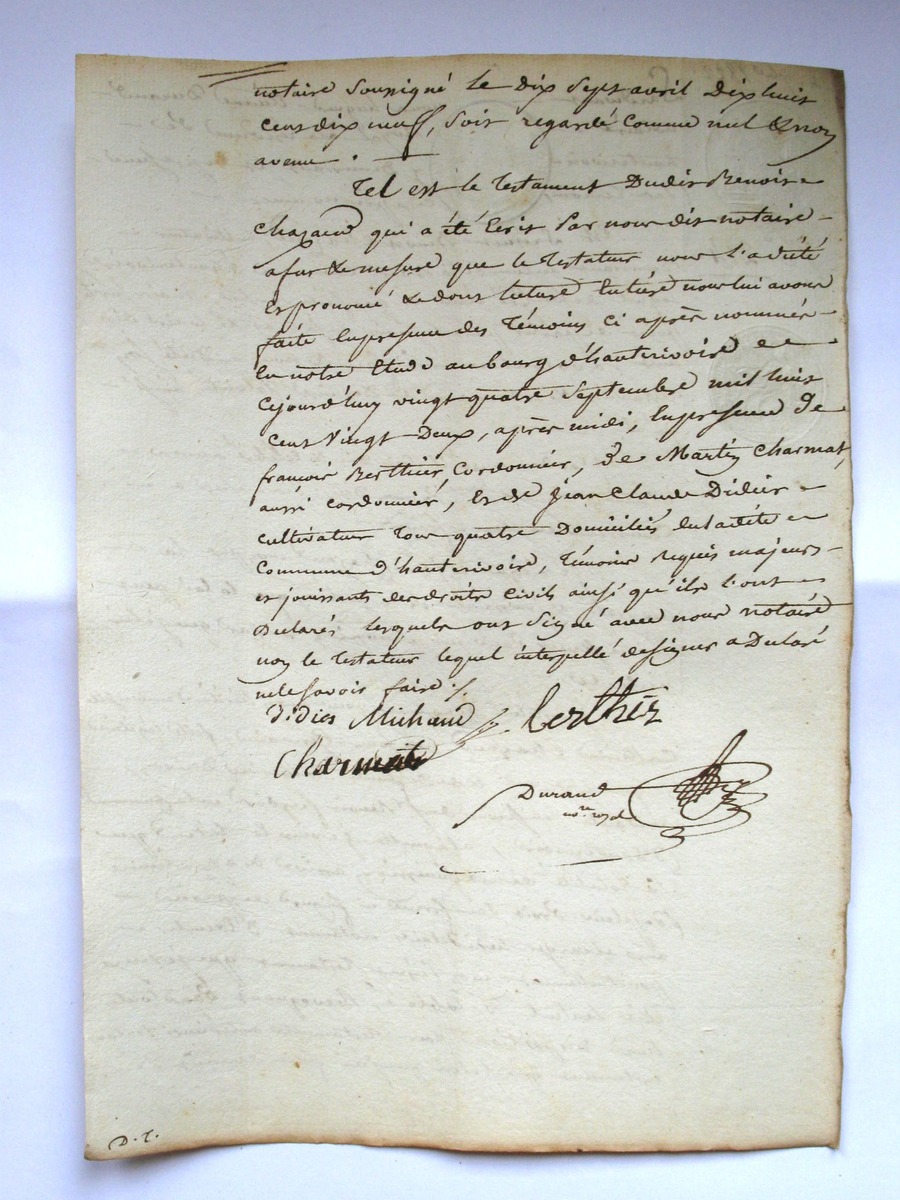 notaire soussigné le dix sept avril dix huit
cent dix neuf, soit regardé comme nul & non
avenu . —
Tel est le testament dudit Benoit
Chazaud qui a été Ecrit par nous dit notaire
a fur & mesure que le testateur nous l'a dicté
et prononcé & dont lecture Entière nous lui avons
faite En presence des témoins ci après nommés
En notre Etude au bourg d'hauterivoire
Cejourd'huy vingt quatre Septembre mil huit
cent vingt Deux, après midi, En presence de
françois Berthier, Cordonnier, de Martin Charmat,
aussi cordonnier, et de Jean Claude Didier
cultivateur tous quatre Domiciliés en ladite
Commune d'hauterivoire, témoins requis majeurs
et jouissants des droits Civils ainsi qu'ils l'ont
Declarés lesquels ont Signé avec nous notaire
non le testateur lequel interpellé de signer a Declaré
ne le savoir faire ./.
didier Michaud Berthier
Charmat
Durand
nore royal
D. T.